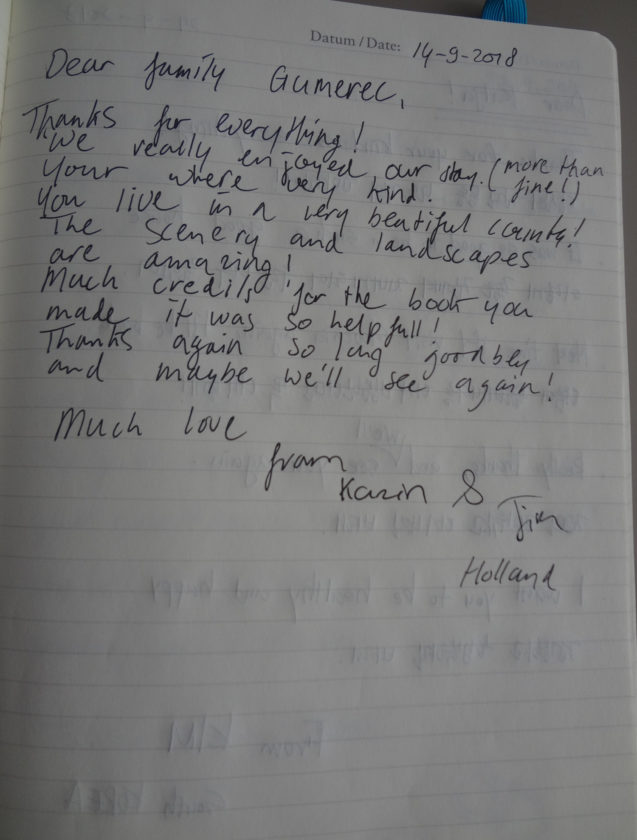 Datum / Date: 14-9-2018
Dear family Gumerec,
Thanks for everything!
We really enjoyed our stay. (more than fine!)
Your where very kind.
You live in a very beatiful county!
The scenery and landscapes
are amazing!
Much credits for the book you
made it was so helpfull!
Thanks again so long goodbey
and maybe we'll see again!
Much love
from
Karin & Jim
Holland